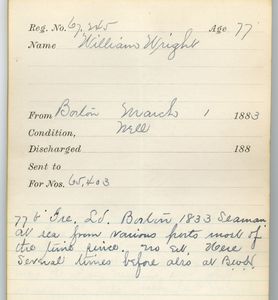 Reg. No. 67,245 Age 77
Name William Wright
From Boston March 1 1883
Condition, Well
Discharged 188
Sent to
For Nos. 65,403
77 b Ire. Ld. Boston 1833 Seaman
at sea from various ports most of
the time since. no set. Here
Several times before also at